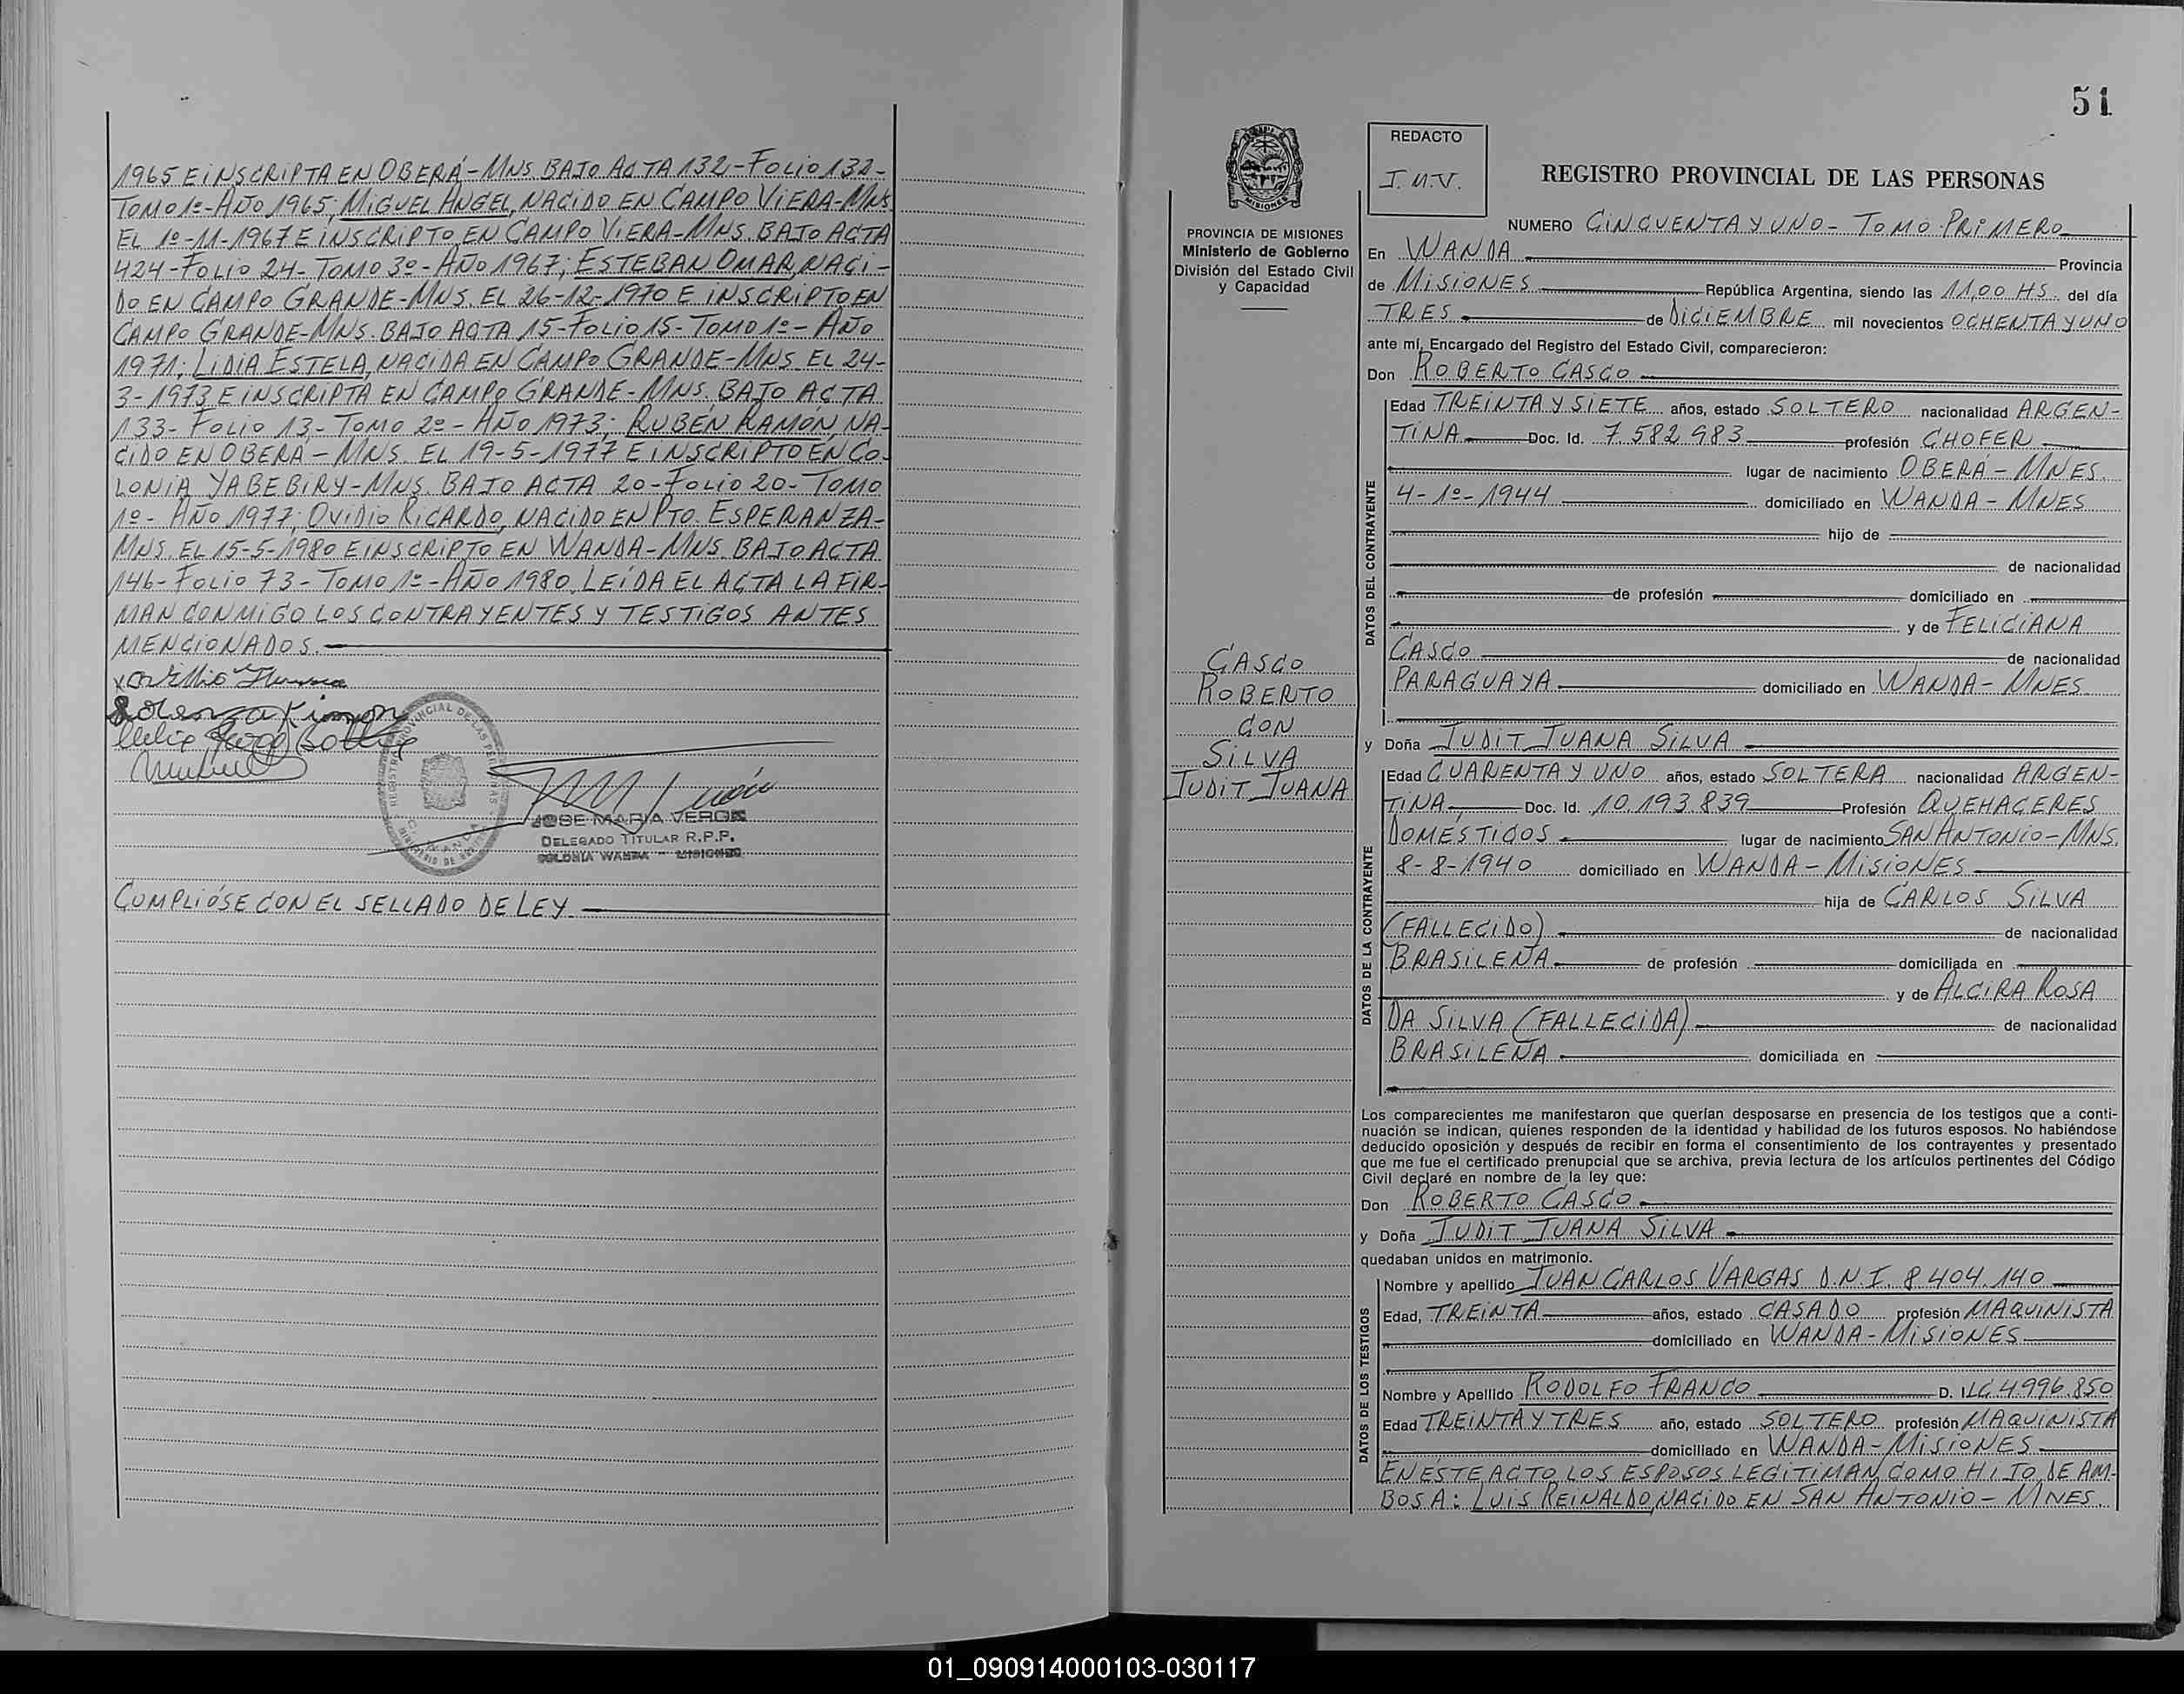 1965 E INSCRIPTA EN OBERÁ-MNS. BAJO ACTA 132-FOLIO 132-
TOMO 1º-AÑO 1965; MIGUEL ANGEL, NACIDO EN CAMPO VIERA-MNS.
EL 1º-11-1967 E INSCRIPTO EN CAMPO VIERA-MNS. BAJO ACTA
424-FOLIO 24-TOMO 3º-AÑO 1967; ESTEBAN OMAR, NACI-
DO EN CAMPO GRANDE-MNS. EL 26-12-1970 E INSCRIPTO EN
CAMPO GRANDE-MNS. BAJO ACTA 15-FOLIO 15-TOMO 1º-AÑO
1971; LIDIA ESTELA, NACIDA EN CAMPO GRANDE-MNS. EL 24-
3-1973 E INSCRIPTA EN CAMPO GRANDE-MNS. BAJO ACTA
133-FOLIO 13-TOMO 2º-AÑO 1973; RUBÉN RAMÓN, NA-
CIDO EN OBERÁ-MNS. EL 19-5-1977 E INSCRIPTO EN CO-
LONIA YABEBIRY-MNS. BAJO ACTA 20-FOLIO 20-TOMO
1º-AÑO 1977; OVIDIO RICARDO, NACIDO EN PTO. ESPERANZA-
MNS. EL 15-5-1980 E INSCRIPTO EN WANDA-MNS. BAJO ACTA
146-FOLIO 73-TOMO 1º-AÑO 1980. LEÍDA EL ACTA LA FIR-
MAN CONMIGO LOS CONTRAYENTES Y TESTIGOS ANTES
MENCIONADOS.
JOSE MARIA VERON
DELEGADO TITULAR R.P.P.
COLONIA WANDA - MISIONES
CUMPLIÓSE CON EL SELLADO DE LEY
51
MISIONES
PROVINCIA DE MISIONES
Ministerio de Gobierno
División del Estado Civil
y Capacidad
CASCO
ROBERTO
CON
SILVA
JUDIT JUANA
REDACTO
J.M.V.
REGISTRO PROVINCIAL DE LAS PERSONAS
NUMERO CINCUENTA Y UNO - TOMO PRIMERO
En WANDA Provincia
de MISIONES República Argentina, siendo las 11,00 HS. del día
TRES de DICIEMBRE mil novecientos OCHENTA Y UNO
ante mí, Encargado del Registro del Estado Civil, comparecieron:
Don ROBERTO CASCO
DATOS DEL CONTRAYENTE
Edad TREINTA Y SIETE años, estado SOLTERO nacionalidad ARGEN-
TINA Doc. Id. 7.582.983 profesión CHOFER
lugar de nacimiento OBERÁ-MNES.
4-1º-1944 domiciliado en WANDA-MNES
hijo de
de nacionalidad
de profesión domiciliado en
y de FELICIANA
CASCO de nacionalidad
PARAGUAYA domiciliado en WANDA-MNES.
y Doña JUDIT JUANA SILVA
DATOS DE LA CONTRAYENTE
Edad CUARENTA Y UNO años, estado SOLTERA nacionalidad ARGEN-
TINA Doc. Id. 10.193.839 Profesión QUEHACERES
DOMÉSTICOS lugar de nacimiento SAN ANTONIO-MNS.
8-8-1940 domiciliado en WANDA-MISIONES
hija de CARLOS SILVA
(FALLECIDO) de nacionalidad
BRASILEÑA de profesión domiciliada en
y de ALCIRA ROSA
DA SILVA (FALLECIDA) de nacionalidad
BRASILEÑA domiciliada en
Los comparecientes me manifestaron que querían desposarse en presencia de los testigos que a conti-
nuación se indican, quienes responden de la identidad y habilidad de los futuros esposos. No habiéndose
deducido oposición y después de recibir en forma el consentimiento de los contrayentes y presentado
que me fue el certificado prenupcial que se archiva, previa lectura de los artículos pertinentes del Código
Civil declaré en nombre de la ley que:
Don ROBERTO CASCO
y Doña JUDIT JUANA SILVA
quedaban unidos en matrimonio.
DATOS DE LOS TESTIGOS
Nombre y apellido JUAN CARLOS VARGAS D.N.I. 8.404.140
Edad, TREINTA años, estado CASADO profesión MAQUINISTA
domiciliado en WANDA-MISIONES
Nombre y Apellido RODOLFO FRANCO D. I. L.C. 4.996.850
Edad TREINTA Y TRES año, estado SOLTERO profesión MAQUINISTA
domiciliado en WANDA-MISIONES
EN ESTE ACTO LOS ESPOSOS LEGITIMAN COMO HIJO DE AM-
BOS A: LUIS REINALDO, NACIDO EN SAN ANTONIO-MNES.
01_090914000103-030117